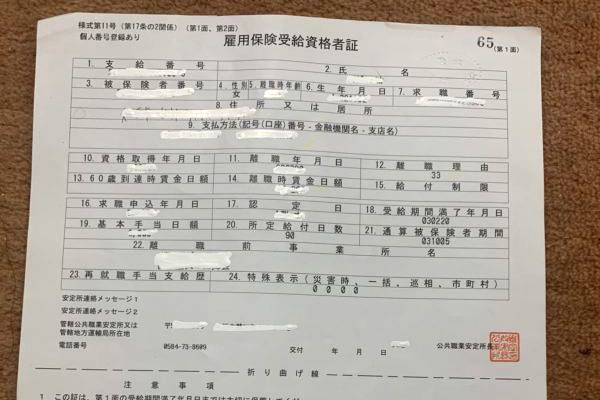 様式第11号（第17条の2関係）（第1面、第2面）
個人番号登録あり
雇用保険受給資格者証
65（第1面）
1. 支給番号 2. 氏名
3. 被保険者番号 4. 性別 5. 離職時年齢 6. 生年月日 7. 求職番号
女
8. 住所又は居所
9. 支払方法(記号(口座)番号 - 金融機関名 - 支店名)
10. 資格取得年月日 11. 離職年月日 12. 離職理由
33
13. 60歳到達時賃金日額 14. 離職時賃金日額 15. 給付制限
16. 求職申込年月日 17. 認定日 18. 受給期間満了年月日
030220
19. 基本手当日額 20. 所定給付日数 21. 通算被保険者期間
90 031005
22. 離職前事業所名
23. 再就職手当支給歴 24. 特殊表示(災害時、一括、巡相、市町村)
0 0 0 0
安定所連絡メッセージ1
安定所連絡メッセージ2
管轄公共職業安定所又は
管轄地方運輸局所在地
電話番号 0584-73-8609 交付 年 月 日 公共職業安定所長
折り曲げ線
注意事項
1 この証は、第1面の受給期間満了年月日までは大切に保管してくだ